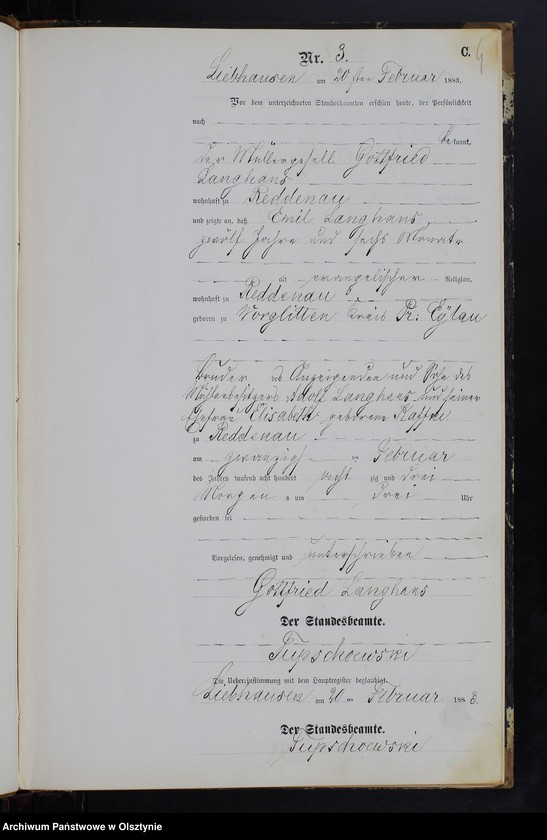 Nr. 3.
C.
Liebhausen am 20sten Februar 1883.
Vor dem unterzeichneten Standesbeamten erschien heute, der Persönlichkeit
nach
bekannt,
der Müllergesell Gottfried
Langhans
wohnhaft zu Reddenau
und zeigte an, daß Emil Langhans
zwölf Jahre und sechs Monate
alt evangelischer Religion,
wohnhaft zu Reddenau
geboren zu Vorglitten Kreis Pr: Eylau
Bruder des Anzeigenden und Sohn des
Mühlenbesitzers Adolf Langhans und seiner
Ehefrau Elisabeth geborene
zu Reddenau
am zwanzigsten Februar
des Jahres tausend acht hundert achtzig und drei
Morgens um drei Uhr
gestorben sei
Vorgelesen, genehmigt und unterschrieben
Gottfried Langhans
Der Standesbeamte.
Die Uebereinstimmung mit dem Hauptregister beglaubigt.
Liebhausen am 20ten Februar 1883.
Der Standesbeamte.
Archiwum Państwowe w Olsztynie